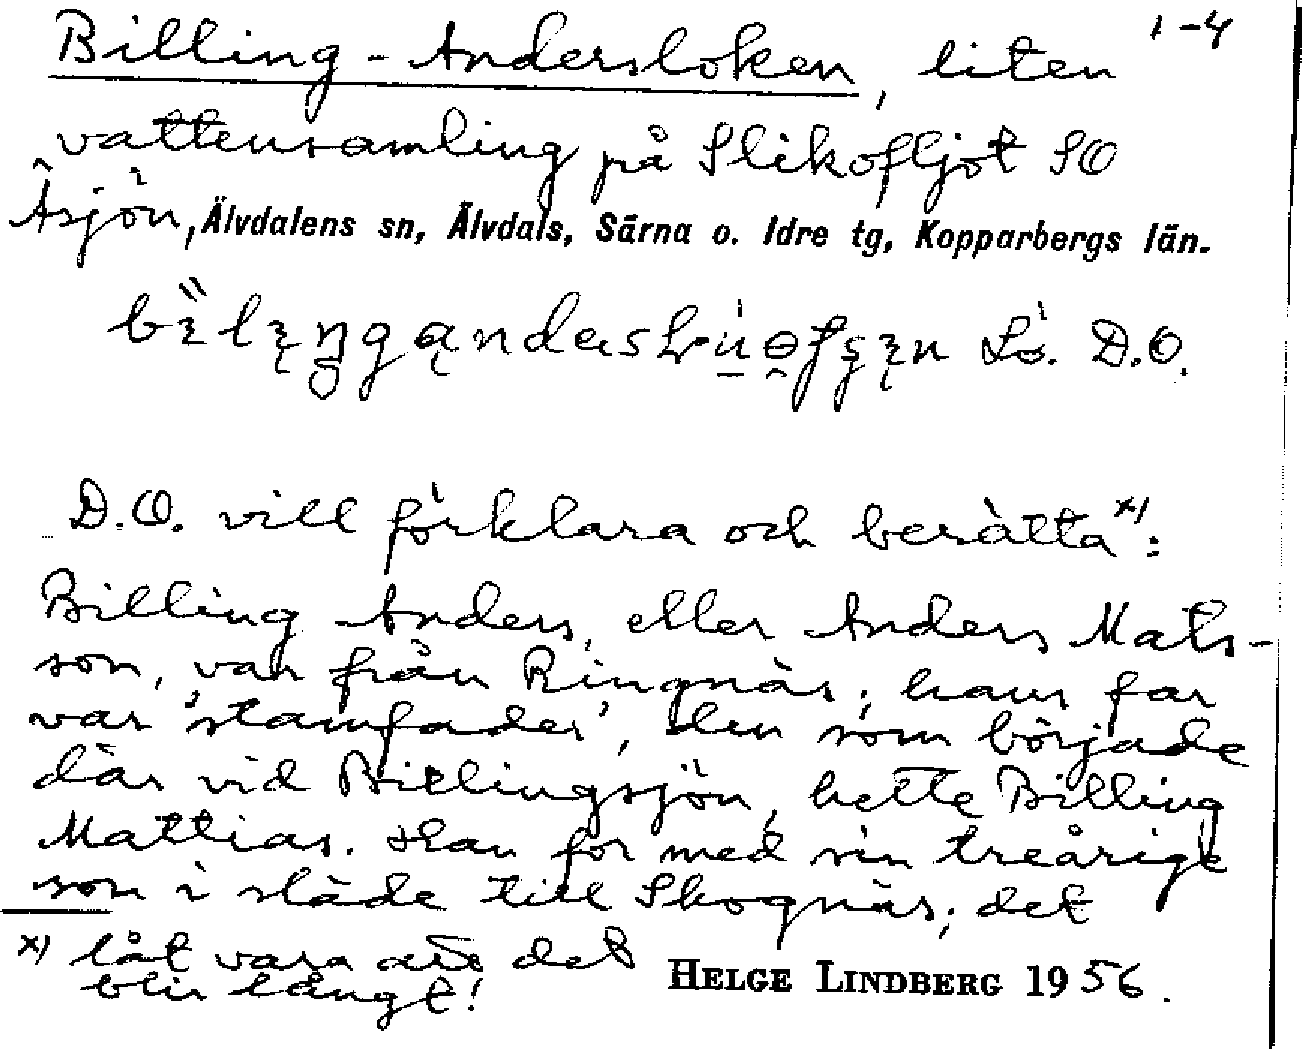 1-4
Billing-Andersloken, liten
vattensamling på Slikofljot SO
Åsjön, Älvdalens sn, Älvdals, Särna o. Idre tg, Kopparbergs län.
Lö. D.O.
D.O. vill förklara och berätta x):
Billing Anders, eller Anders Mats-
son, var från Ringnäs; hans far
var 'stamfader', den som började
där vid Billingsjön, hette Billing
Mattias. Han for med sin treårige
son i släde till Skognäs; det
x) låt vara att det
blir långt!
HELGE LINDBERG 1956.